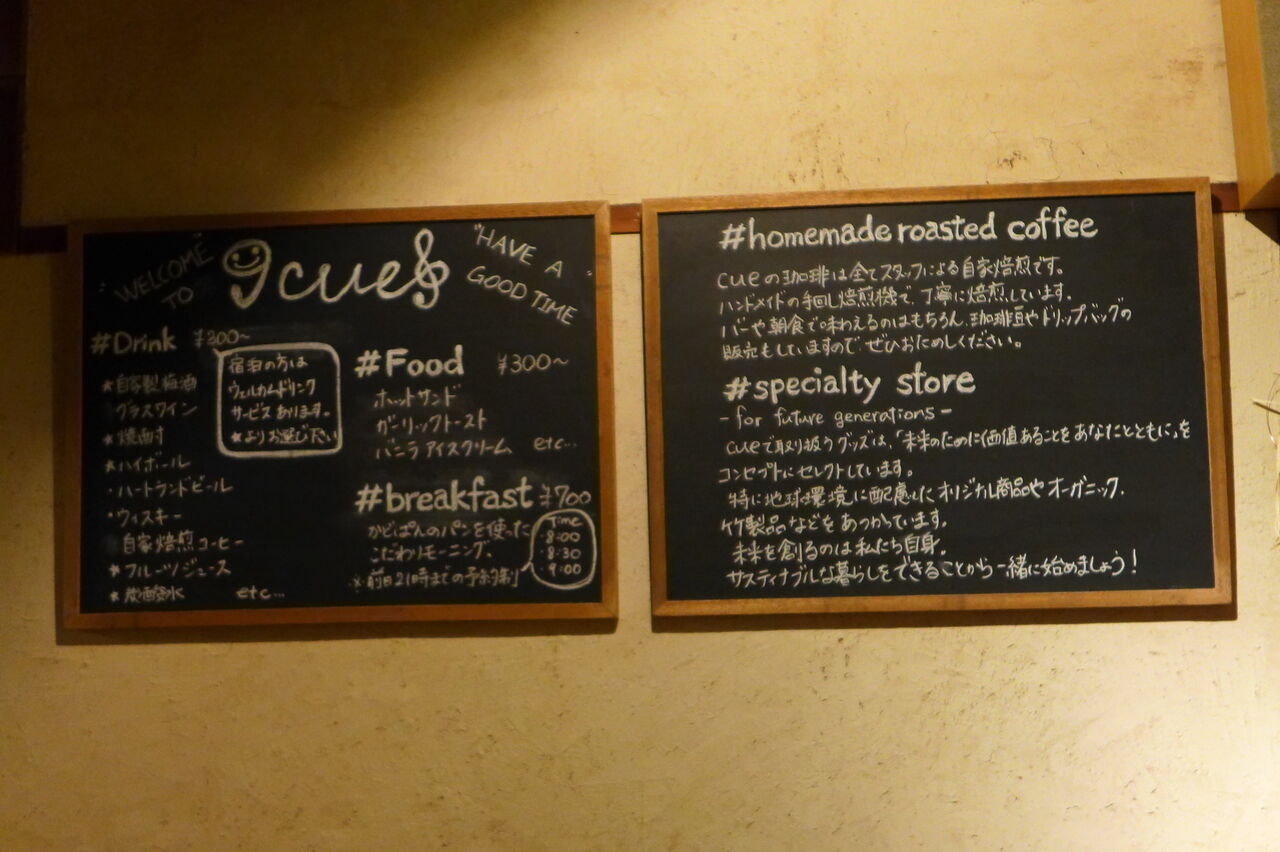 "WELCOME TO"
gcue
"HAVE A
GOOD TIME"
#Drink ¥300~
★自家製梅酒
グラスワイン
★焼酎
★ハイボール
・ハートランドビール
・ウィスキー
自家焙煎コーヒー
★フルーツジュース
★炭酸水 etc...
宿泊の方は
ウェルカムドリンク
サービスあります。
★よりお選び下さい
#Food ¥300~
ホットサンド
ガーリックトースト
バニラアイスクリーム etc...
#breakfast ¥700
かどぱんのパンを使った
こだわりモーニング。
※前日21時までの予約制
Time
8:00
・8:30
・9:00
#homemade roasted coffee
cueの珈琲は全てスタッフによる自家焙煎です。
ハンドメイドの手回し焙煎機で、丁寧に焙煎しています。
バーや朝食で味わえるのはもちろん、珈琲豆やドリップバッグの
販売もしていますので、ぜひおためしください。
#specialty store
- for future generations -
cueで取り扱うグッズは、「未来のために価値あることをあなたとともに」を
コンセプトにセレクトしています。
特に地球環境に配慮したオリジナル商品やオーガニック、
竹製品などをあつかています。
未来を創るのは私たち自身。
サスティナブルな暮らしをできることから一緒に始めましょう!